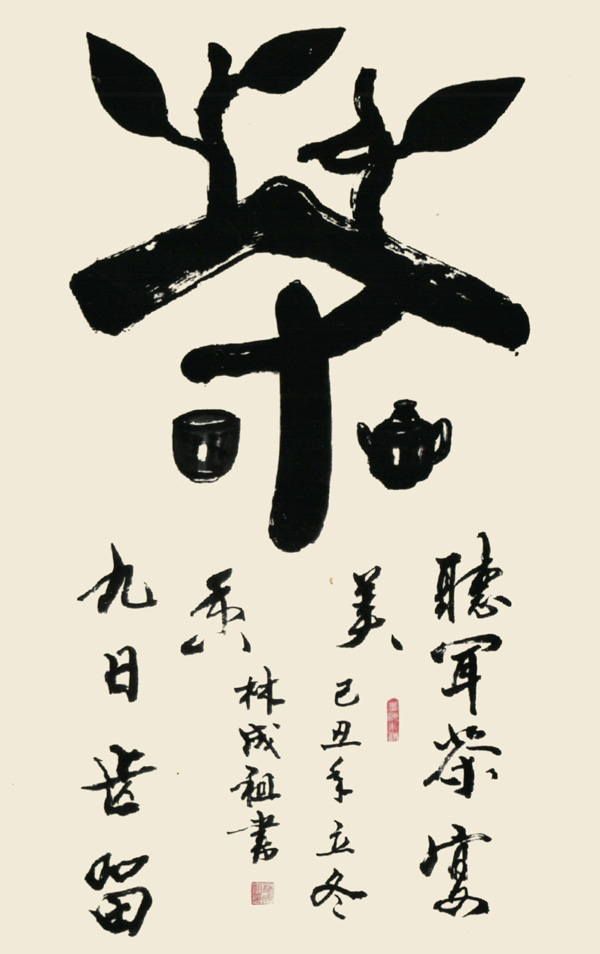 茶
聽軍茶宴
美
九日齒留
香
己丑年立冬
林成祖書